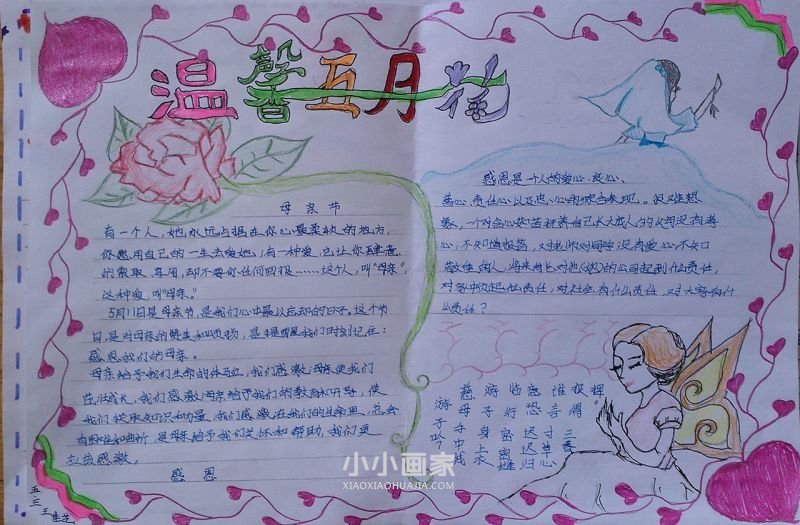 温馨五月花
母亲节
有一个人，她永远占据在你心最柔软的地方，
你愿用自己的一生去爱她；有一种爱，它让你肆意
的索取、享用，却不要你任何回报……这个人，叫“母亲”，
这种爱，叫“母亲”。
5月11日是母亲节，是我们心中最以忘却的日子。这个节
日，是对母亲的赞美和颂扬，是提醒我们时刻记住：
感恩我们的母亲。
母亲给予我们生命的体
我们感激母亲使我们
茁壮成长，我们感激母亲给予我们的教
使
我们获取知识和力量，我们感激在我们的生命里，总会
是母亲给予我们关怀和帮助，我们更
应该感激。
感恩
感恩是一个人的爱心、良心、
善心、责任心以及忠心的综合表现。很难想
象，一个对含心茹苦抚养自己长大成人的父母没有孝
心，不知道报答，对老师对同学没有爱心，不知
将来
的公司起到什么责任，
对家
起什么责任，对社会有什么责任，对大家有什
么责任？
慈母手中线
游子身上衣
临行密密缝
谁
寸草心
报得三
晖
五三王
小小画家
XIAOXIAOHUAJIA.COM